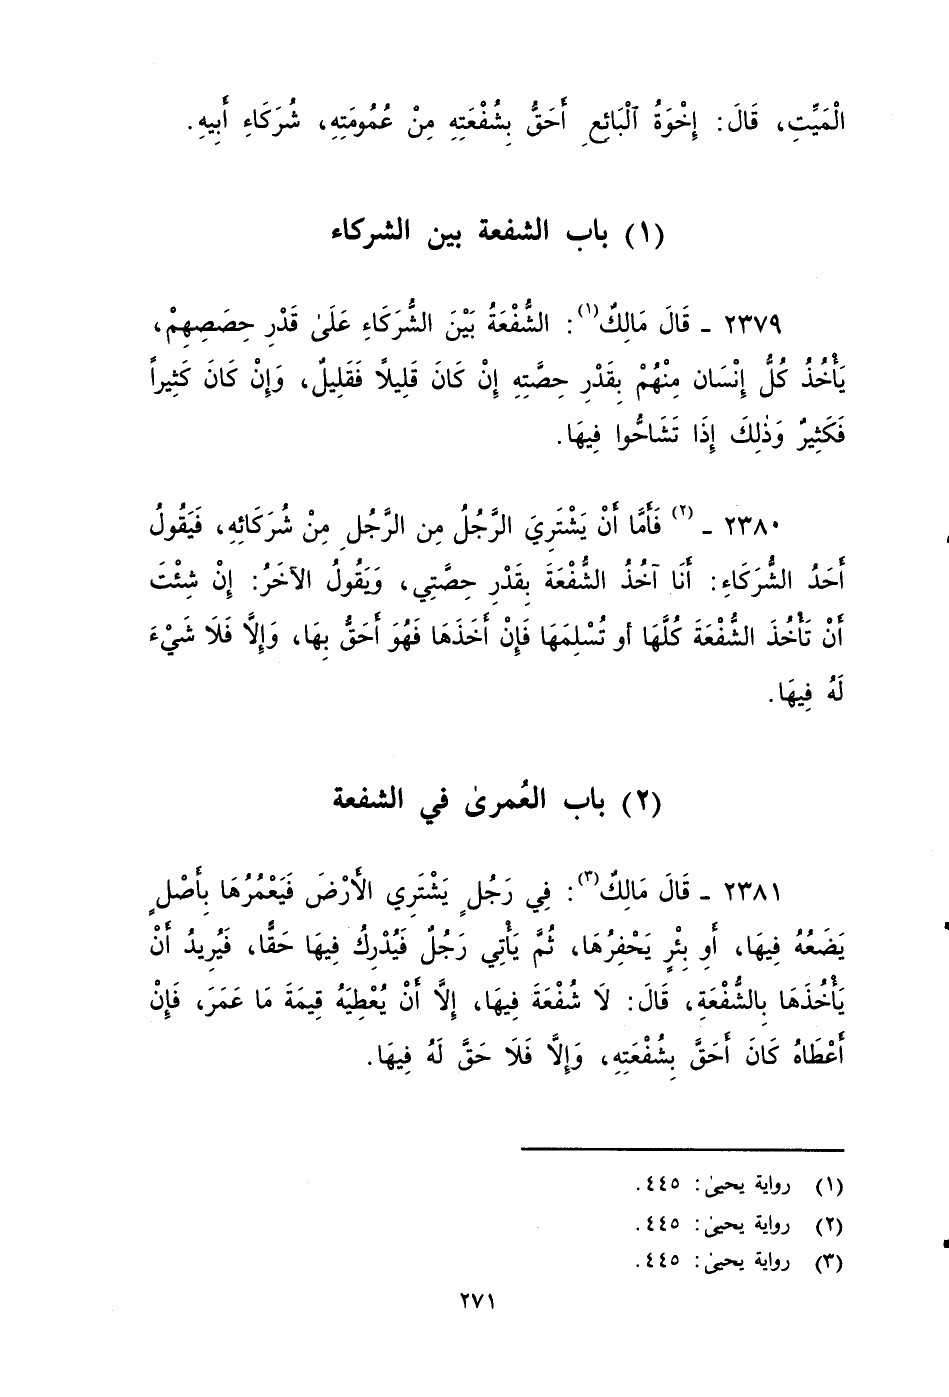 الْمَيِّتِ، قَالَ: إِخْوَةُ ٱلْبَائِعِ أَحَقُّ بِشُفْعَتِهِ مِنْ عُمُومَتِهِ، شُرَكَاءِ أَبِيهِ.
(١) باب الشفعة بين الشركاء
٢٣٧٩ ـ قَالَ مَالِكٌ(١): الشُّفْعَةُ بَيْنَ الشُّرَكَاءِ عَلَىٰ قَدْرِ حِصَصِهِمْ،
يَأْخُذُ كُلُّ إِنْسَان مِنْهُمْ بِقَدْرِ حِصَّتِهِ إِنْ كَانَ قَلِيلًا فَقَلِيلٌ، وَإِنْ كَانَ كَثِيراً
فَكَثِيرٌ وَذٰلِكَ إِذَا تَشَاحُّوا فِيهَا.
٢٣٨٠ ـ (٢) فَأَمَّا أَنْ يَشْتَرِيَ الرَّجُلُ مِن الرَّجُلِ مِنْ شُرَكَائِهِ، فَيَقُولُ
أَحَدُ الشُّرَكَاءِ: أَنَا آخُذُ الشُّفْعَةَ بِقَدْرِ حِصَّتِي، وَيَقُولُ الآخَرُ: إِنْ شِئْتَ
أَنْ تَأْخُذَ الشُّفْعَةَ كُلَّهَا أو تُسْلِمَهَا فَإِنْ أَخَذَهَا فَهُوَ أَحَقُّ بِهَا، وَإِلَّا فَلَا شَيْءَ
لَهُ فِيهَا.
(٢) باب العُمرىٰ في الشفعة
٢٣٨١ ـ قَالَ مَالِكٌ(٣): فِي رَجُلٍ يَشْتَرِي الأَرْضَ فَيَعْمُرُهَا بِأَصْلٍ
يَضَعُهُ فِيهَا، أَو بِئْرٍ يَحْفِرُهَا، ثُمَّ يَأْتِي رَجُلٌ فَيُدْرِكُ فِيهَا حَقًّا، فَيُرِيدُ أَنْ
يَأْخُذَهَا بِالشُّفْعَةِ، قَالَ: لَا شُفْعَةَ فِيهَا، إِلَّا أَنْ يُعْطِيَهُ قِيمَةَ مَا عَمَرَ، فَإِنْ
أَعْطَاهُ كَانَ أَحَقَّ بِشُفْعَتِهِ، وَإِلَّا فَلَا حَقَّ لَهُ فِيهَا.
(١) رواية يحيىٰ: ٤٤٥.
(٢) رواية يحيىٰ: ٤٤٥.
(٣) رواية يحيىٰ: ٤٤٥.
٢٧١